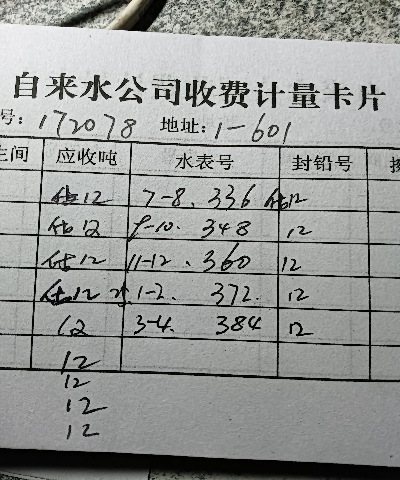 自来水公司收费计量卡片
号: 172078 地址: 1-601
生间 应收吨 水表号 封铅号
估12 7-8. 336 估12
估12 9-10. 348 12
估12 11-12. 360 12
估12 1-2. 372. 12
12 3-4. 384 12
12
12
12
12